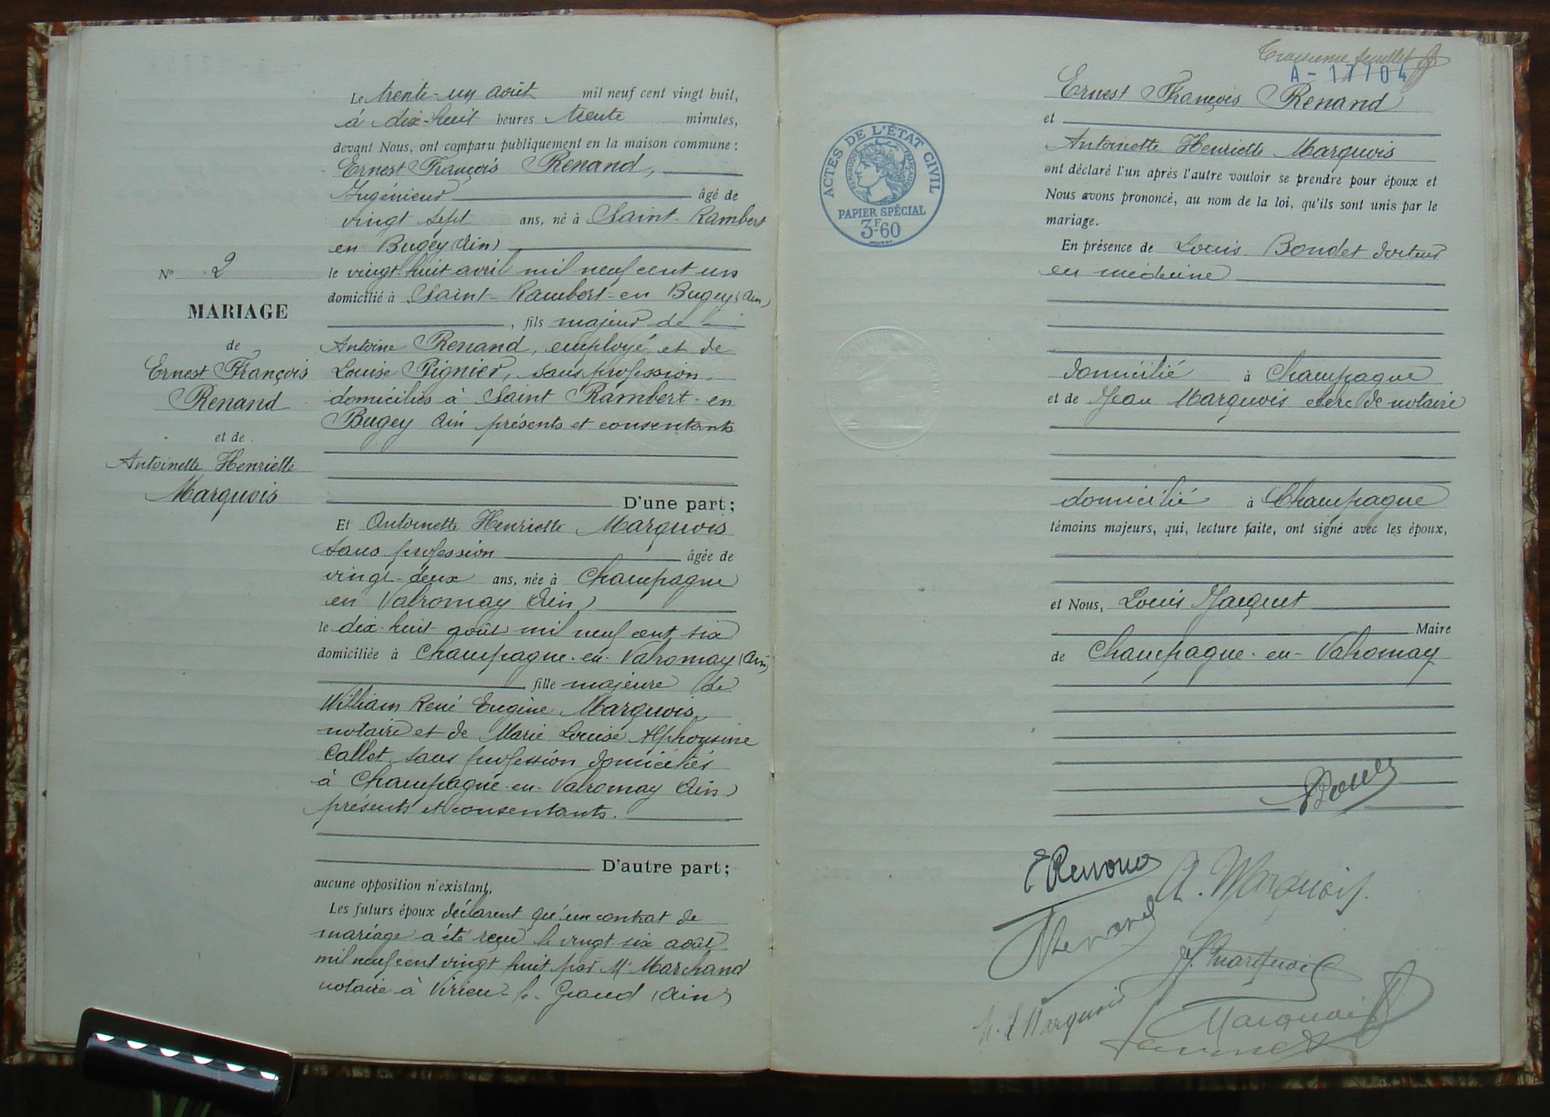 Le trente-un août mil neuf cent vingt huit,
à dix-huit heures trente minutes,
devant Nous, ont comparu publiquement en la maison commune :
Ernest François Renand,
Ingénieur âgé de
vingt sept ans, né à Saint-Rambert
en Bugey (Ain)
le vingt huit avril mil neuf cent un
domicilié à Saint-Rambert-en Bugey (Ain)
, fils majeur de
Antoine Renand, employé et de
Louise Pignier, sans profession
domiciliés à Saint Rambert-en
Bugey Ain présents et consentants
D'une part ;
Et Antoinette Henriette Marquois
sans profession âgée de
vingt-deux ans, née à Champagne
en Valromay (Ain)
le dix-huit août mil neuf cent six
domiciliée à Champagne-en-Valromay (Ain)
fille majeure de
William René Eugène Marquois,
notaire et de Marie Louise Alphonsine
Callet sans profession domiciliés
à Champagne-en-Valromay (Ain)
présents et consentants.
D'autre part ;
aucune opposition n'existant,
Les futurs époux déclarent qu'un contrat de
mariage a été reçu le vingt six août
mil neuf cent vingt huit par Me Marchand
notaire à Virieu-le-Grand (Ain)
N° 2
MARIAGE
de
Ernest François
Renand
et de
Antoinette Henriette
Marquois
feuillet
A-17704
Ernest François Renand
et
Antoinette Henriette Marquois
ont déclaré l'un après l'autre vouloir se prendre pour époux et
Nous avons prononcé, au nom de la loi, qu'ils sont unis par le
mariage.
En présence de Louis Bondet docteur
en médecine
domicilié à Champagne
et de Jean Marquois clerc de notaire
domicilié à Champagne
témoins majeurs, qui, lecture faite, ont signé avec les époux,
et Nous, Louis
Maire
de Champagne-en-Valromay
ACTES DE L'ÉTAT CIVIL
PAPIER SPÉCIAL
3F60
E Renand
A. Marquois
Renand
J. Marquois
Marquois
Marquois